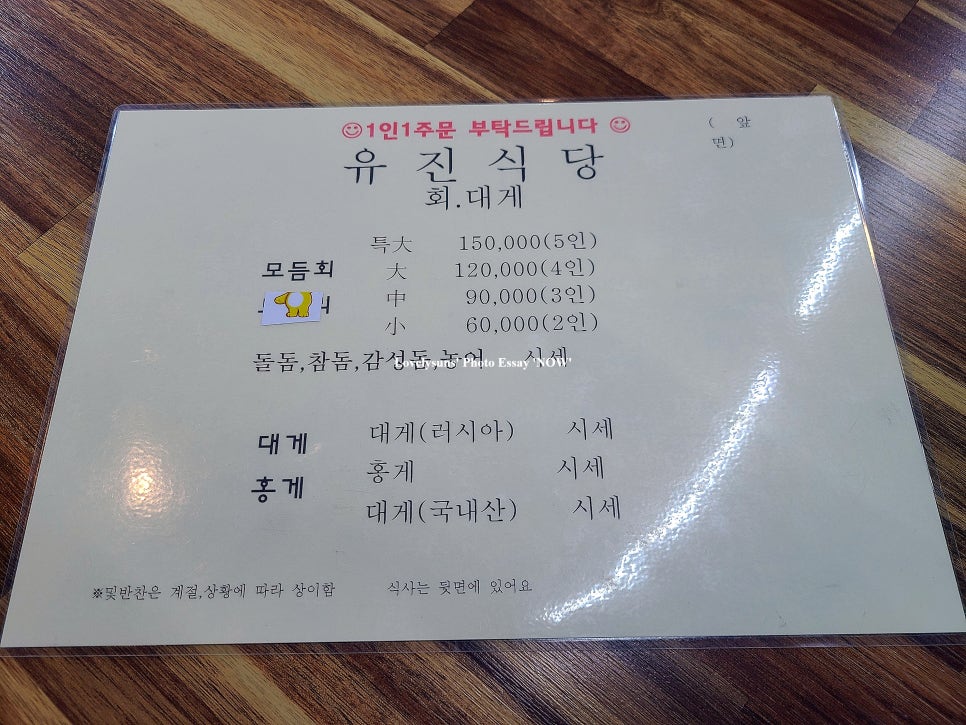 1인1주문 부탁드립니다
( 앞
면)
유 진 식 당
회.대게
모듬회
특大 150,000(5인)
大 120,000(4인)
中 90,000(3인)
小 60,000(2인)
돌돔,참돔,감성돔,농어 시세
Lovelysuns' Photo Essay 'NOW'
대게
홍게
대게(러시아) 시세
홍게 시세
대게(국내산) 시세
※밑반찬은 계절,상황에 따라 상이함 식사는 뒷면에 있어요